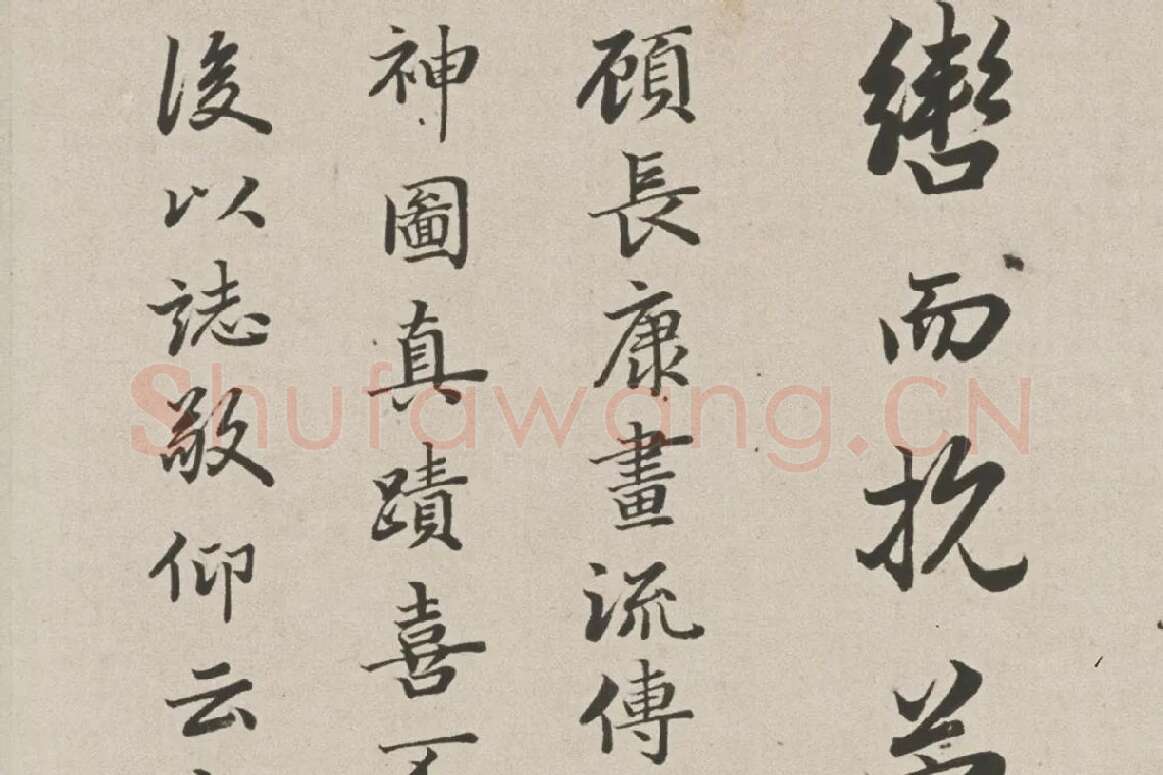 轡而抗
顧長康畫流傳
神圖真蹟喜不
後以誌敬仰云
Shufawang.CN